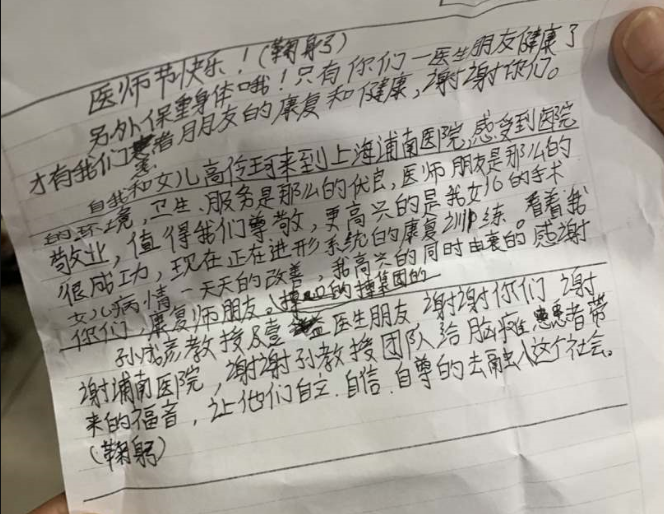 医师节快乐！(鞠躬)
另外保重身体哦！只有你们一医生朋友健康了
才有我们患者朋友的康复和健康，谢谢你们。
自我和女儿高伶珂来到上海浦南医院，感受到医院
的环境，卫生、服务是那么的优良，医师朋友是那么的
敬业，值得我们尊敬，更高兴的是我女儿的手术
很成功，现在正在进形系统的康复训练。看着我
女儿病情一天天的改善，我高兴的同时由衷的感谢
你们，康复师朋友。
孙成彦教授及 医生朋友，谢谢你们，谢
谢浦南医院，谢谢孙教授团队给脑瘫患者带
来的福音，让他们自立.自信.自尊的去融入这个社会。
(鞠躬)